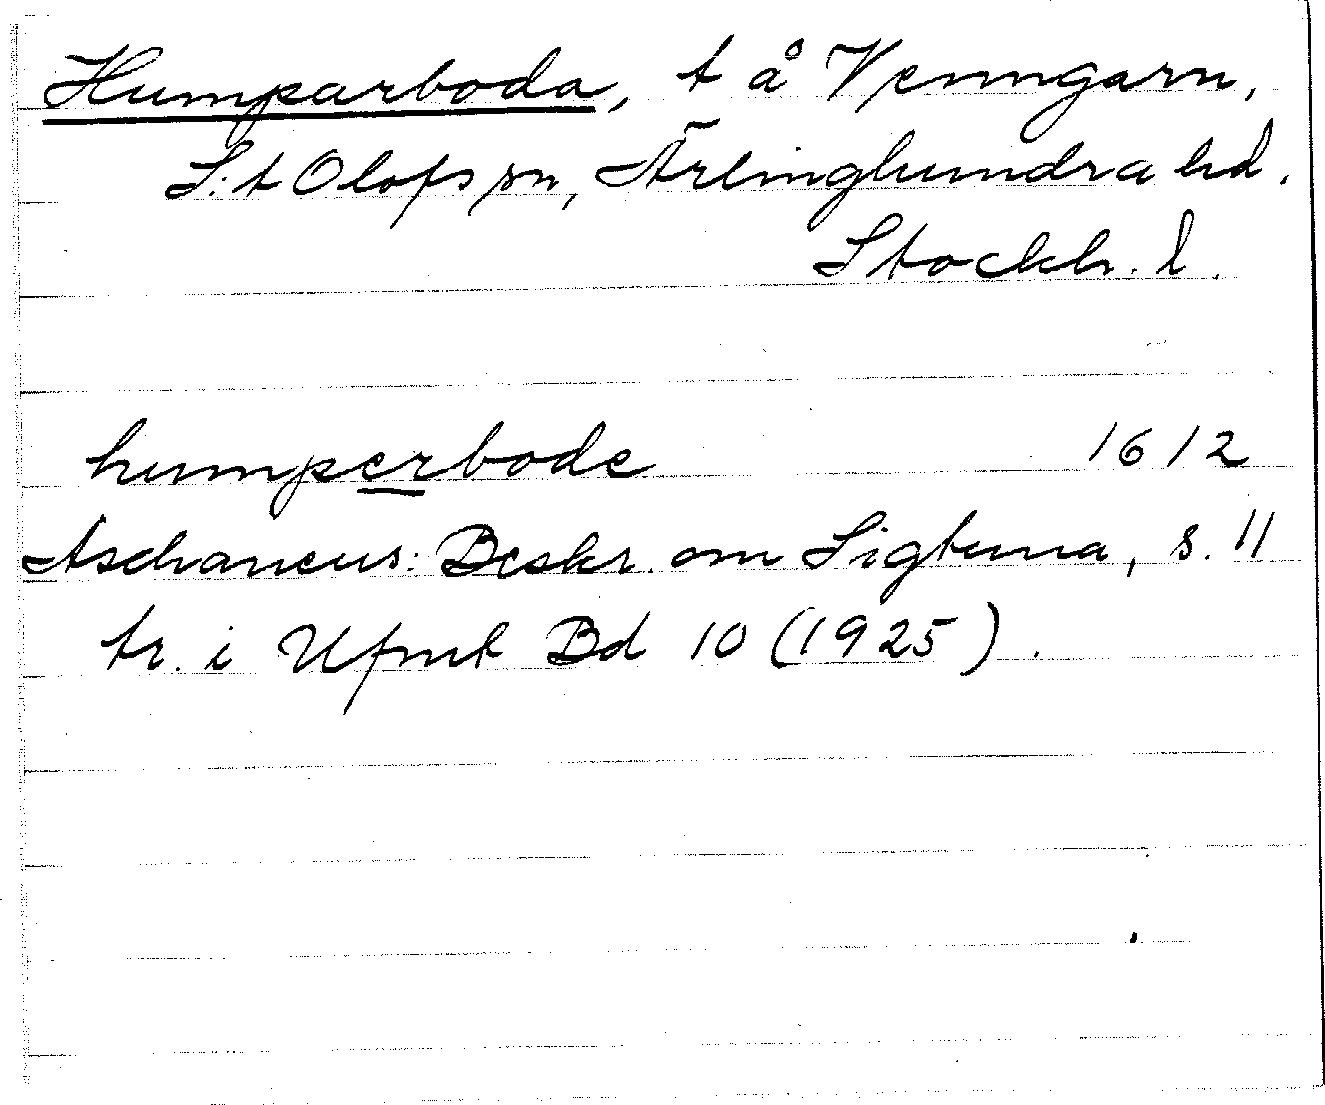 Humparboda, t å Venngarn,
S:t Olofs sn, Ärlinghundra hd.
Stockh. l.
humperbode 1612
Aschaneus: Beskr. om Sigtuna, s. 11
tr. i Ufmt Bd 10 (1925).